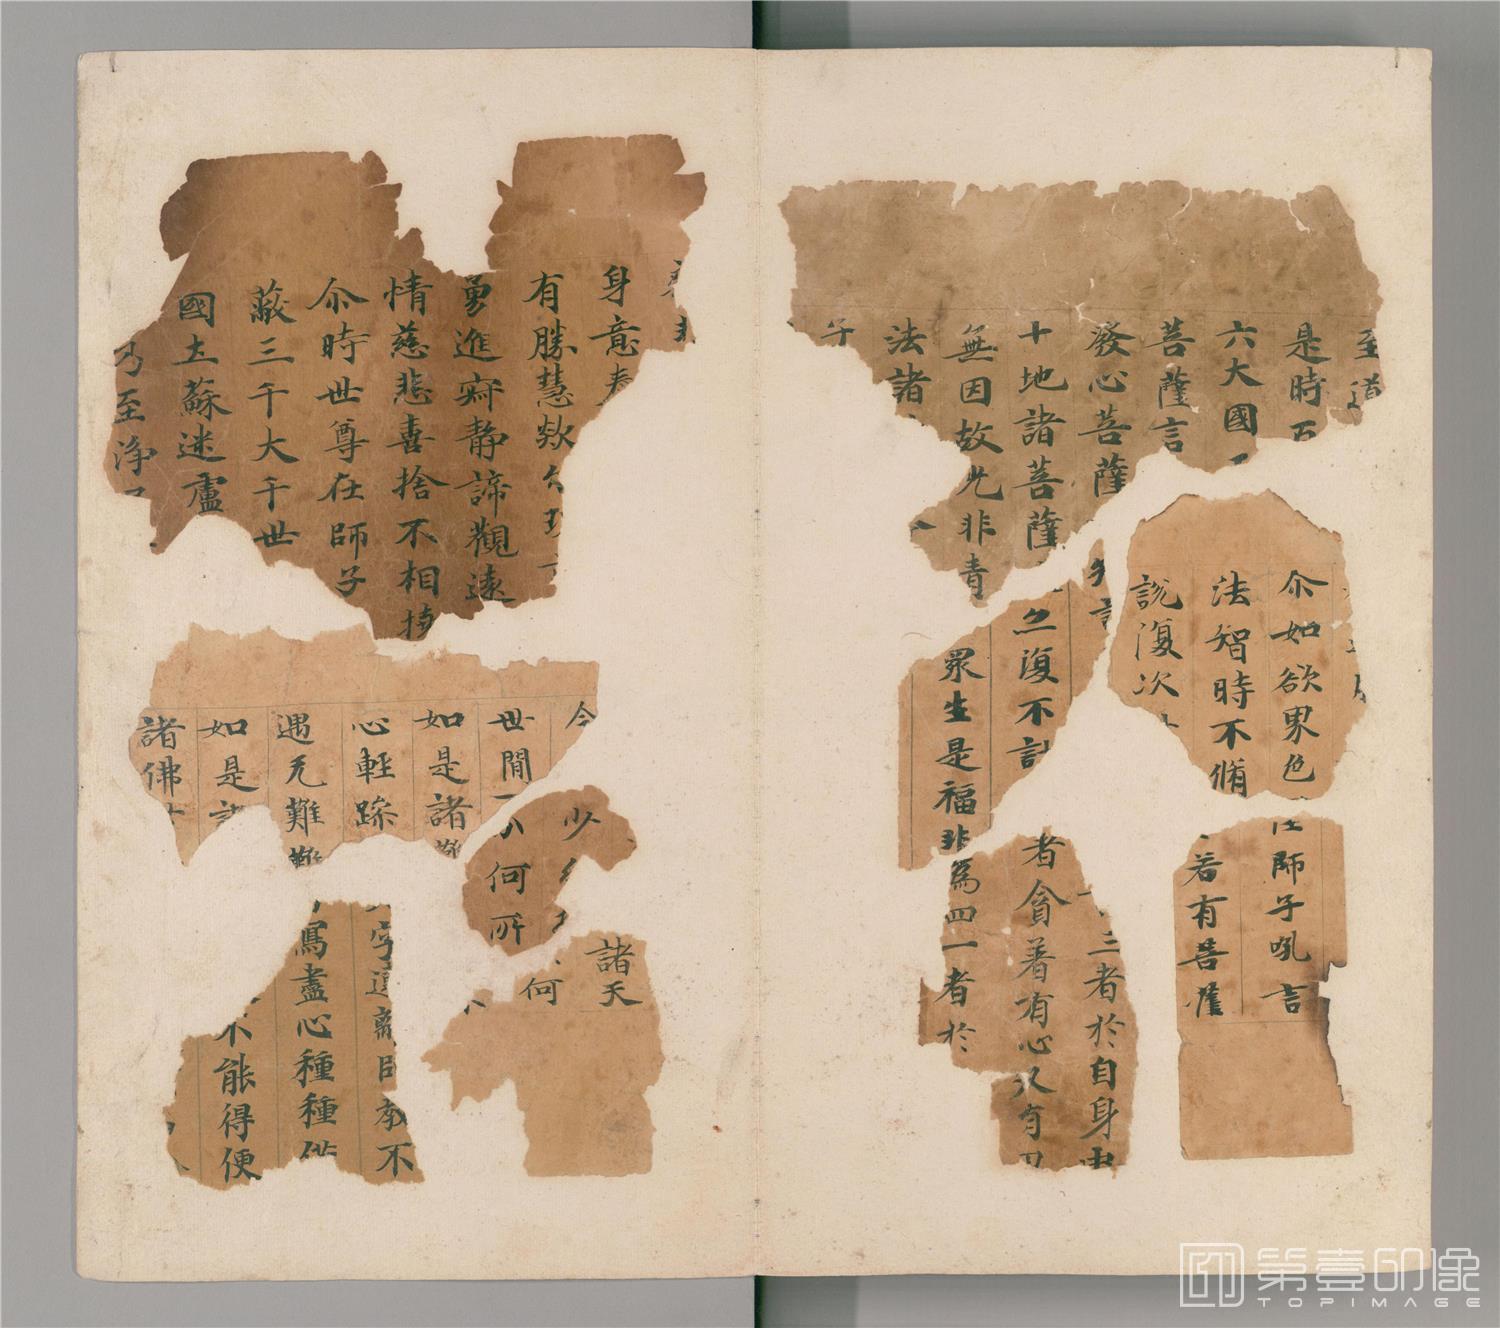 至道
是時百
六大國
菩薩言
發心菩薩
十地諸菩薩
無因故也非青
法諸
尒如欲界色
法智時不脩
說復次
亦復不計
眾生是福非
師子吼言
若有菩薩
三者於自身
者貪著有心又有
為四一者於
身意
有勝慧欻
勇進寂靜諦觀遠
情慈悲喜捨不相
尒時世尊在師子
藏三千大千世
國土蘇迷盧
乃至淨
今
世間
如是諸難
心輕躁
遇无難難
如是
諸佛
少
何所
諸天
何
離師教不
寫盡心種種
不能得便
第壹印像
TOPIMAGE